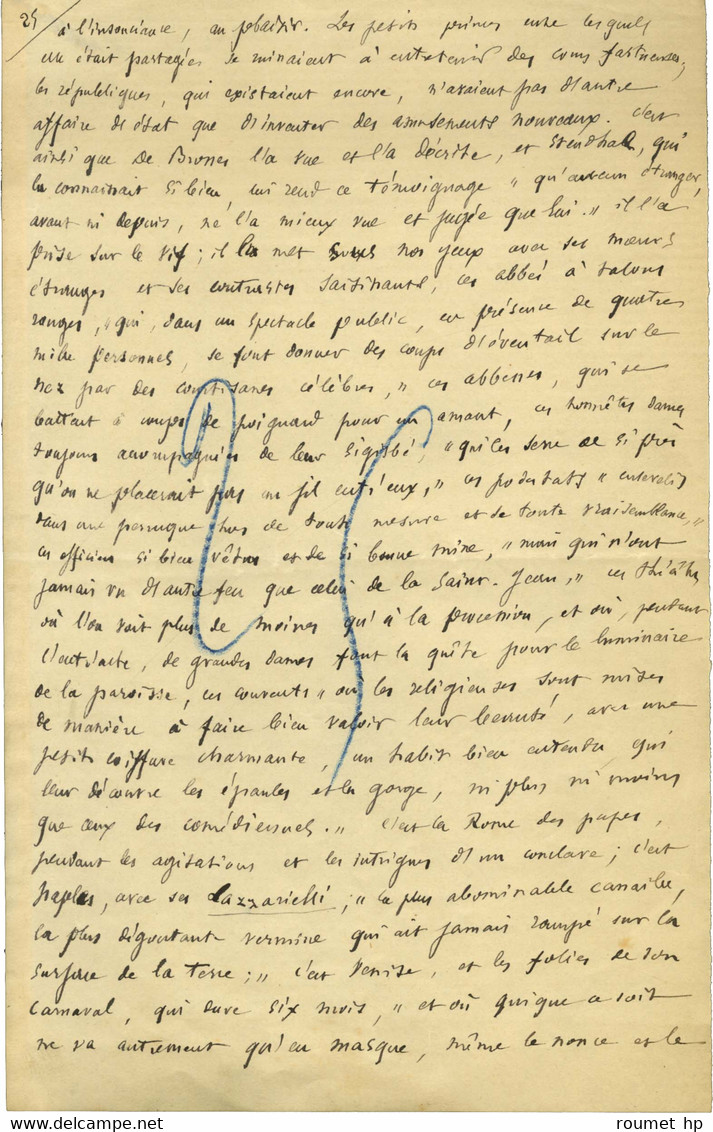 25
à l'insouciance, au plaisir. Les petits princes entre lesquels
elle était partagée se ruinaient à entretenir des cours fastueuses;
les républiques, qui existaient encore, n'avaient pas d'autre
affaire d'état que d'inventer des amusements nouveaux. C'est
ainsi que De Brosses l'a vue et l'a décrite, et Stendhal, qui
la connaissait si bien, lui rend ce témoignage "qu'aucun étranger,
avant ni depuis, ne l'a mieux vue et jugée que lui." il l'a
prise sur le vif; il la met sous nos yeux avec ses mœurs
étranges et ses contrastes saisissants, ces abbés à talons
rouges, "qui, dans un spectacle public, en présence de quatre
mille personnes, se font donner des coups d'éventail sur le
nez par des courtisanes célèbres," ces abbesses, qui se
battent à coups de poignard pour un amant, ces honnêtes dames
toujours accompagnées de leur sigisbé, "qui les serre de si près
qu'on ne placerait pas un fil entr'eux," ces podestats "ensevelis
dans une perruque hors de toute mesure et de toute vraisemblance,"
ces officiers si bien vêtus et de si bonne mine, "mais qui n'ont
jamais vu d'autre feu que celui de la Saint-Jean," ces théâtres
où l'on voit plus de moines qu'à la procession, et où, pendant
l'entr'acte, de grandes dames font la quête pour le luminaire
de la paroisse, ces couvents "où les religieuses sont mises
de manière à faire bien valoir leur beauté, avec une
petite coiffure charmante, un habit bien entendu qui
leur découvre les épaules et la gorge, ni plus ni moins
que ceux des comédiennes." C'est la Rome des papes,
pendant les agitations et les intrigues d'un conclave; c'est
Naples, avec ses Lazzarielli; "la plus abominable canaille,
la plus dégoûtante vermine qui ait jamais rampé sur la
surface de la terre;" c'est Venise, et les folies de son
carnaval, qui dure six mois, "et où qui que ce soit
ne va autrement qu'en masque, même le nonce et le
roumet hp